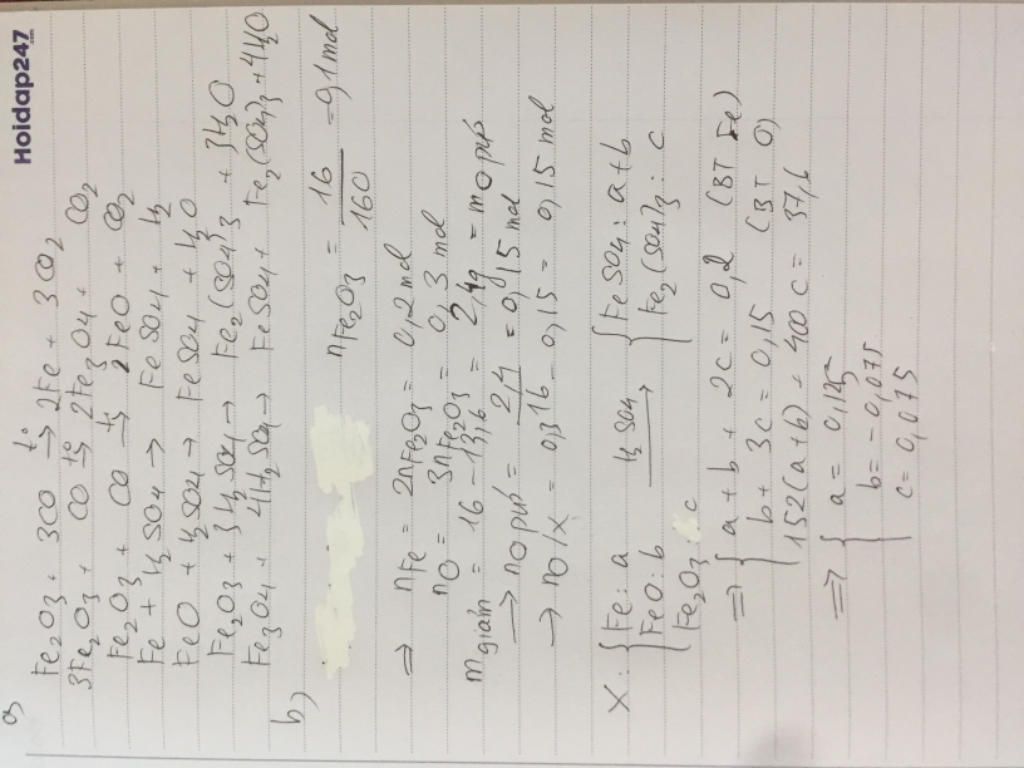 Hoidap247
a)
Fe2O3 + 3CO t°→ 2Fe + 3CO2
3Fe2O3 + CO t°→ 2Fe3O4 + CO2
Fe2O3 + CO t°→ 2FeO + CO2
Fe + H2SO4 → FeSO4 + H2
FeO + H2SO4 → FeSO4 + H2O
Fe2O3 + 3H2SO4 → Fe2(SO4)3 + 3H2O
Fe3O4 + 4H2SO4 → FeSO4 + Fe2(SO4)3 + 4H2O
b)
nFe2O3 = 16/160 = 0,1 mol
⇒ nFe = 2nFe2O3 = 0,2 mol
nO = 3nFe2O3 = 0,3 mol
m giảm = 16 - 13,6 = 2,4g = mO pứ
→ nO pứ = 2,4/16 = 0,15 mol
→ nO/X = 0,3 - 0,15 = 0,15 mol
X: { Fe: a H2SO4 → { FeSO4: a+b
FeO: b Fe2(SO4)3: c
Fe2O3 c
⇒ { a + b + 2c = 0,2 (BT Fe)
b + 3c = 0,15 (BT O)
152(a+b) + 400c = 37,6
⇒ { a = 0,125
b = -0,075
c = 0,075